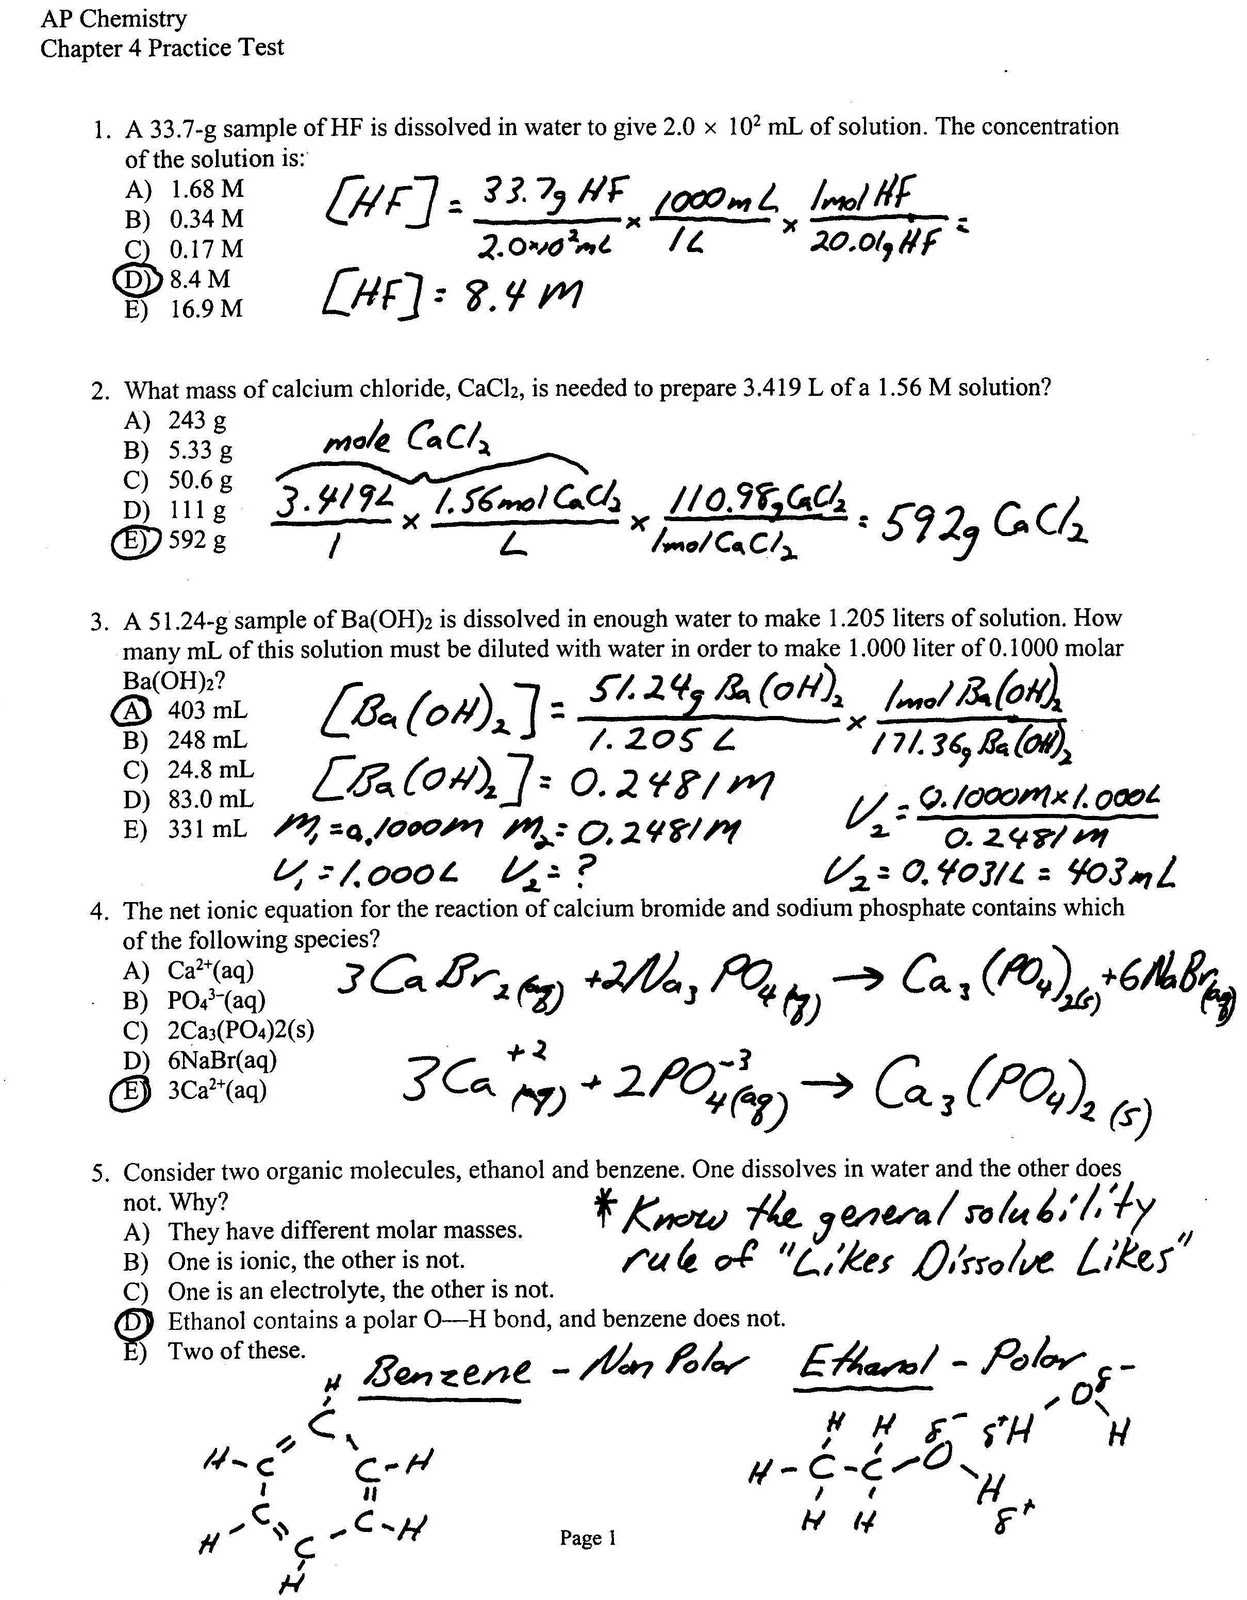 AP Chemistry
Chapter 4 Practice Test
1. A 33.7-g sample of HF is dissolved in water to give 2.0 × 10² mL of solution. The concentration
of the solution is:
A) 1.68 M
B) 0.34 M
C) 0.17 M
D) 8.4 M
E) 16.9 M
[HF] = 33.7g HF / 2.0×10²mL × 1000mL / 1L × 1mol HF / 20.01g HF =
[HF] = 8.4 M
2. What mass of calcium chloride, CaCl₂, is needed to prepare 3.419 L of a 1.56 M solution?
A) 243 g
B) 5.33 g
C) 50.6 g
D) 111 g
E) 592 g
mole CaCl₂
3.419L / 1 × 1.56mol CaCl₂ / L × 110.98g CaCl₂ / 1mol CaCl₂ = 592g CaCl₂
3. A 51.24-g sample of Ba(OH)₂ is dissolved in enough water to make 1.205 liters of solution. How
many mL of this solution must be diluted with water in order to make 1.000 liter of 0.1000 molar
Ba(OH)₂?
A) 403 mL
B) 248 mL
C) 24.8 mL
D) 83.0 mL
E) 331 mL
[Ba(OH)₂] = 51.24g Ba(OH)₂ / 1.205 L × 1mol Ba(OH)₂ / 171.36g Ba(OH)₂
[Ba(OH)₂] = 0.2481 M
M₁ = 0.1000M M₂ = 0.2481M
V₁ = 1.000L V₂ = ?
V₂ = 0.1000M × 1.000L / 0.2481 M
V₂ = 0.4031L = 403mL
4. The net ionic equation for the reaction of calcium bromide and sodium phosphate contains which
of the following species?
A) Ca²⁺(aq)
B) PO₄³⁻(aq)
C) 2Ca₃(PO₄)2(s)
D) 6NaBr(aq)
E) 3Ca²⁺(aq)
3CaBr₂(aq) + 2Na₃PO₄(aq) → Ca₃(PO₄)₂(s) + 6NaBr(aq)
3Ca⁺²(aq) + 2PO₄⁻³(aq) → Ca₃(PO₄)₂(s)
5. Consider two organic molecules, ethanol and benzene. One dissolves in water and the other does
not. Why?
A) They have different molar masses.
B) One is ionic, the other is not.
C) One is an electrolyte, the other is not.
D) Ethanol contains a polar O—H bond, and benzene does not.
E) Two of these.
* Know the general solubility
rule of "Likes Dissolve Likes"
Benzene - Non Polar
H
C
H-C C-H
C C-H
H C
H
Ethanol - Polar
O δ-
H H δ- δ+H H
H-C-C-O
H
H H δ+
Page 1